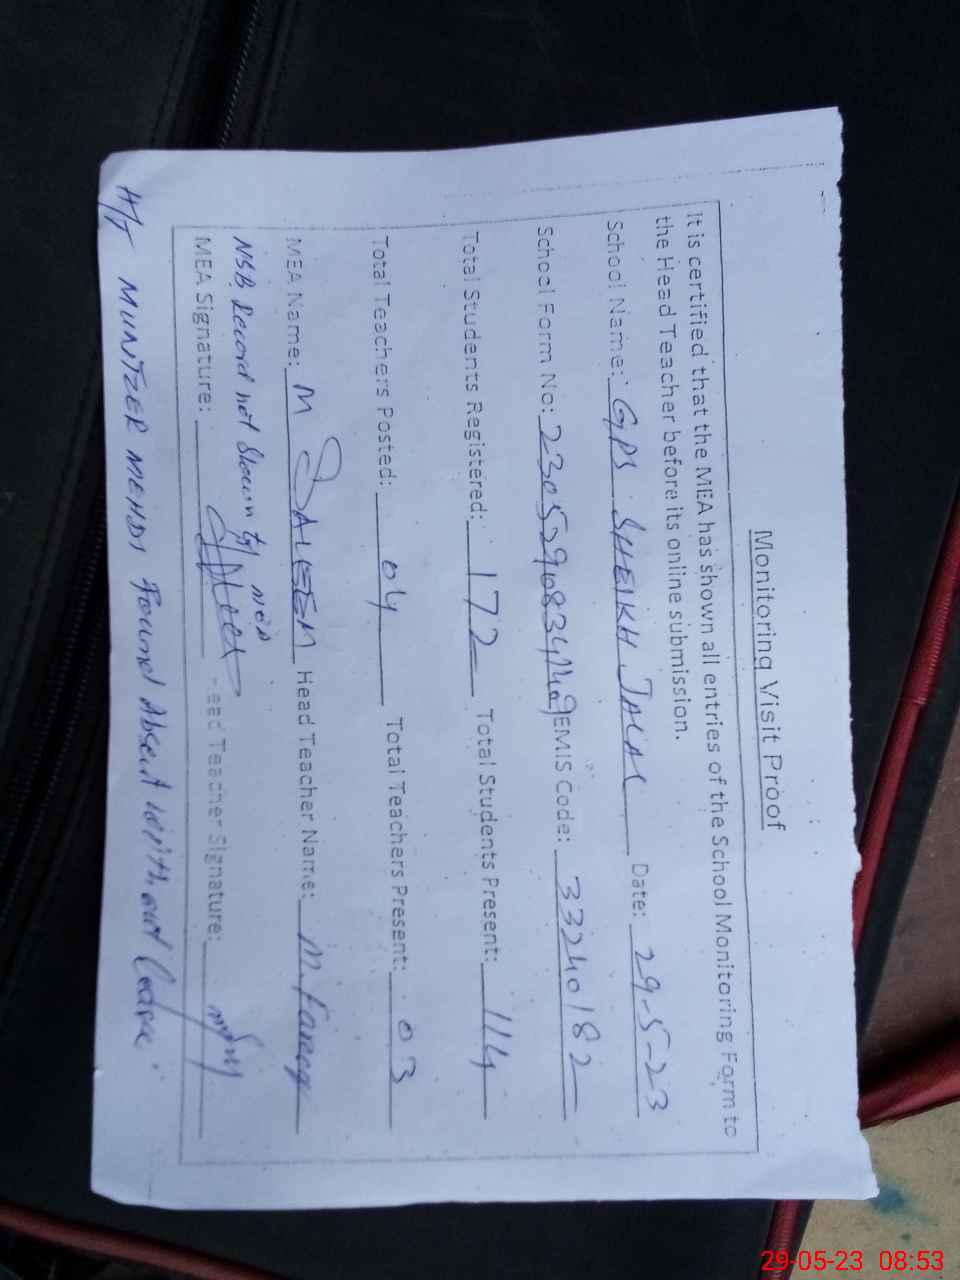 Monitoring Visit Proof
It is certified that the MEA has shown all entries of the School Monitoring Form to
the Head Teacher before its online submission.
School Name: GPS SHEIKH JALAL Date: 29-5-23
School Form No: EMIS Code: 33240182
Total Students Registered: 172 Total Students Present: 114
Total Teachers Posted: 04 Total Teachers Present: 03
MEA Name: M SALEEM Head Teacher Name: M. farooq
NSB Record not Shown by MEA
MEA Signature: Head Teacher Signature:
H/T MUNTZER MEHDI Found Absent without leave.
29-05-23 08:53